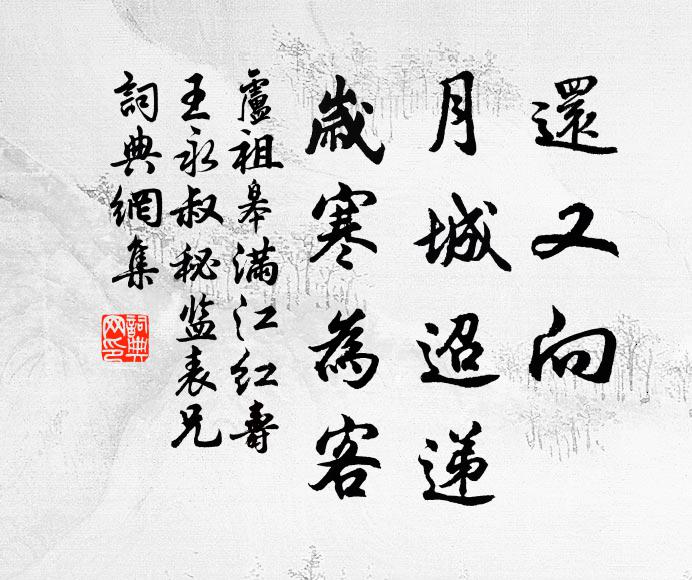 還又向
月城迢遞
歲寒為客
盧祖皋滿江紅壽
王永叔秘监表兄
詞典網集
詞典
网印